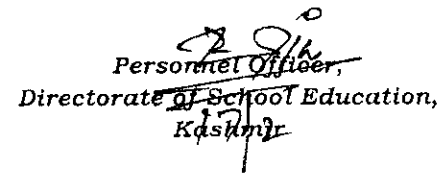 Personnel Officer,
Directorate of School Education,
Kashmir